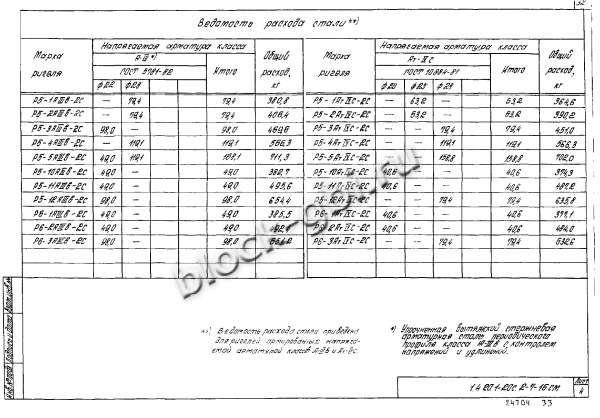 32
Ведомость расхода стали **)
Марка ригеля
Напрягаемая арматура класса
А-IIIв *)
ГОСТ 5781-82
ф22 ф28
Итого
Общий расход, кг
Марка ригеля
Напрягаемая арматура класса
Ат-IVС
ГОСТ 10884-81
ф20 ф25 ф28
Итого
Общий расход, кг
Р5-1АIIIв-2С — 79,4 79,4 380,8 Р5-1АтIVС-2С — 63,2 — 63,2 364,6
Р5-2АIIIв-2С — 79,4 79,4 406,4 Р5-2АтIVС-2С — 63,2 — 63,2 390,2
Р5-3АIIIв-2С 98,0 — 98,0 469,6 Р5-3АтIVС-2С — — 79,4 79,4 451,0
Р5-4АIIIв-2С — 119,1 119,1 566,3 Р5-4АтIVС-2С — — 119,1 119,1 566,3
Р5-5АIIIв-2С 49,0 119,1 168,1 711,3 Р5-5АтIVС-2С — — 158,8 158,8 702,0
Р5-10АIIIв-2С 49,0 — 49,0 Р5-10АтIVС-2С 40,6 — — 40,6 374,3
Р5-11АIIIв-2С 49,0 — 49,0 495,6 Р5-11АтIVС-2С 40,6 — — 40,6 487,2
Р5-12АIIIв-2С 98,0 — 98,0 654,4 Р5-12АтIVС-2С — — 79,4 79,4 635,8
Р6-1АIIIв-2С 49,0 — 49,0 385,5 Р6-1АтIVС-2С 40,6 — — 40,6 377,1
Р6-2АIIIв-2С 49,0 — 49,0 Р6-2АтIVС-2С 40,6 — — 40,6 484,0
Р6-3АIIIв-2С 98,0 — 98,0 Р6-3АтIVС-2С — — 79,4 79,4 632,6
block-gbi.ru
**) Ведомость расхода стали приведена
для ригелей, армированных напрягаемой
арматурой классов А-IIIв и Ат-IVС.
*) Упрочненная вытяжкой стержневая
арматурная сталь периодического
профиля класса А-IIIв с контролем
напряжений и удлинений.
1.420.1-20с.2-1-16СМ
Лист
4
24704 33